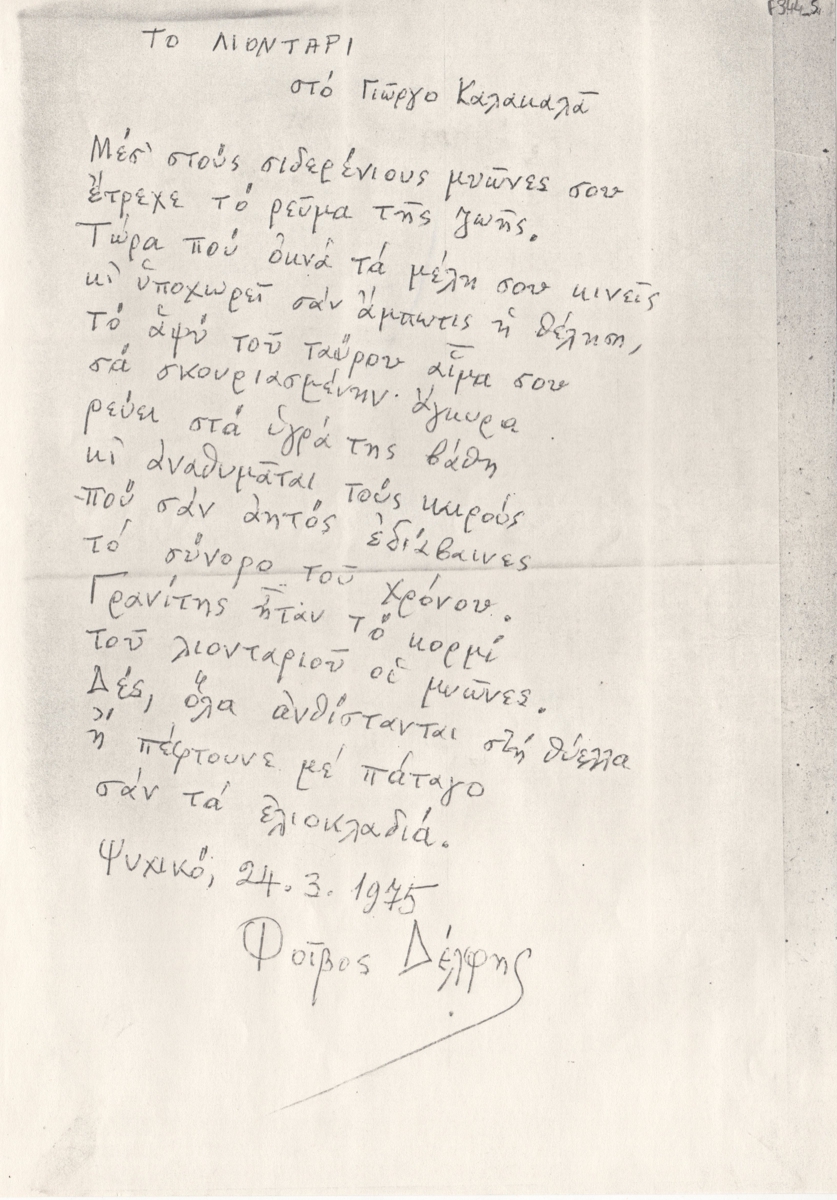 F344_5
ΤΟ ΛΙΟΝΤΑΡΙ
στό Γιῶργο Καλακαλᾶ
Μέσ' στούς σιδερένιους μυῶνες σου
ἔτρεχε τό ρεῦμα τῆς ζωῆς.
Τώρα πού ὀκνά τά μέλη σου κινεῖς
κι ὑποχωρεῖ σάν ἄμπωτις ἡ θέληση,
τό ἁψύ τοῦ ταύρου αἷμα σου
σά σκουριασμένην ἄγκυρα
ρεύει στά ὑγρά της βάθη
κι ἀναθυμᾶται τούς καιρούς
πού σάν ἀητός ἐδιάβαινες
τό σύνορο τοῦ χρόνου.
Γρανίτης ἦταν τό κορμί
τοῦ λιονταριοῦ οἱ μυῶνες.
Δές, ὅλα ἀνθίστανται στή θύελλα
ἤ πέφτουνε μέ πάταγο
σάν τά ἐλιοκλαδιά.
Ψυχικό, 24.3.1975
Φοῖβος Δέλφης